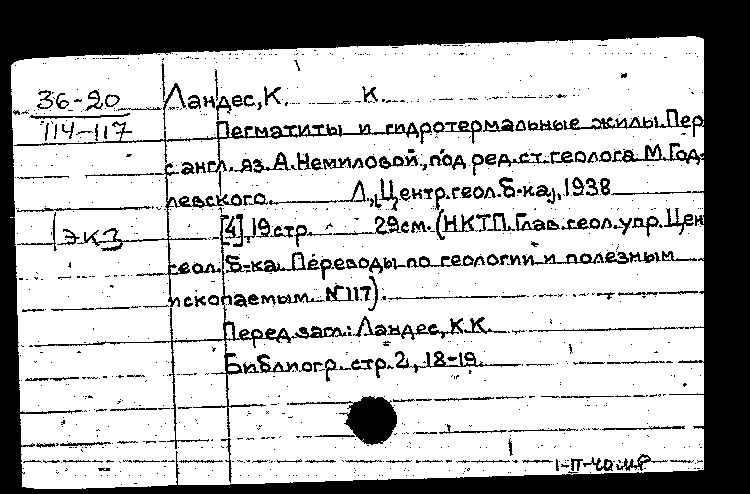 36-20 Ландес, К. К.
114-117 Пегматиты и гидротермальные жилы. Пер
с англ. яз. А. Немиловой, под ред. ст. геолога М. Год-
левского. Л., [Центр. геол. б-ка], 1938
1 экз [4], 19 стр. 29 см. (НКТП. Глав. геол. упр. Цен
геол. б-ка. Переводы по геологии и полезным
ископаемым. № 117).
Перед загл.: Ландес, К. К.
Библиогр. стр. 2, 18-19.
1-II-40